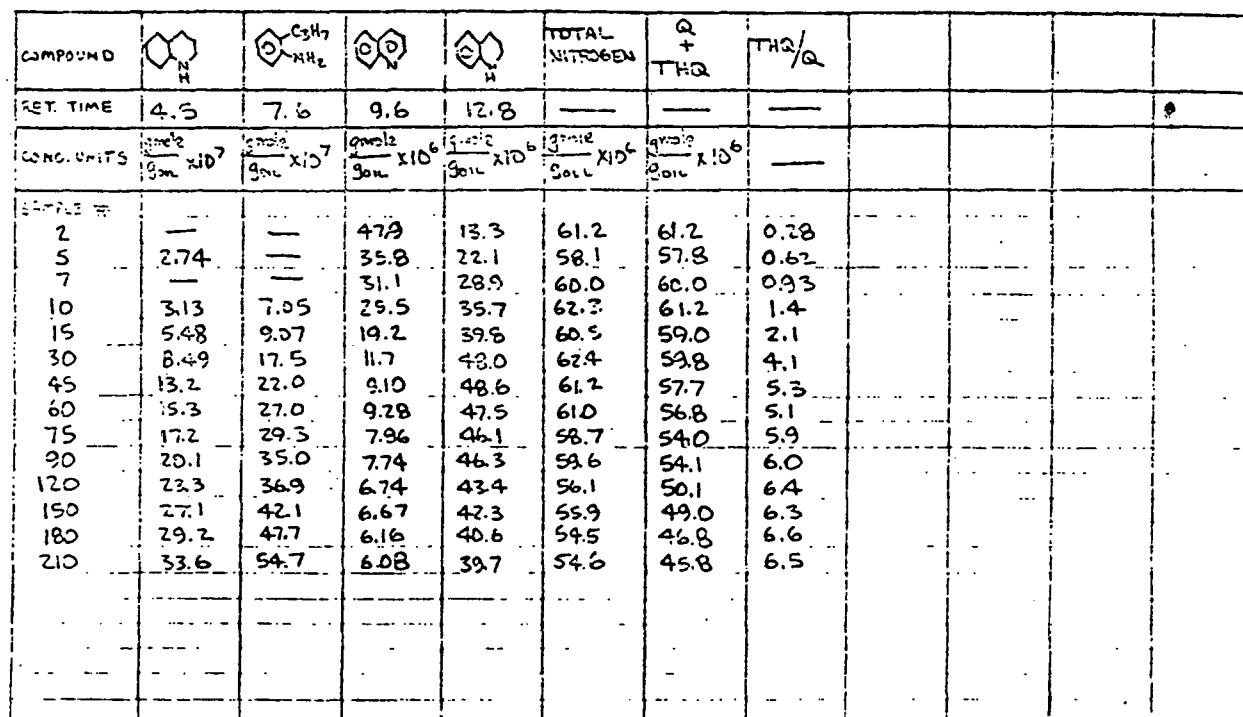 COMPOUND N H C3H7 NH2 N N H TOTAL NITROGEN Q + THQ THQ/Q
RET. TIME 4.5 7.6 9.6 12.8 — — —
CONC. UNITS gmole/goil x10^7 gmole/goil x10^7 gmole/goil x10^6 gmole/goil x10^6 gmole/goil x10^6 gmole/goil x10^6 —
SAMPLE #
2 — — 47.9 13.3 61.2 61.2 0.28
5 2.74 — 35.8 22.1 58.1 57.8 0.62
7 — — 31.1 28.9 60.0 60.0 0.93
10 3.13 7.05 25.5 35.7 62.3 61.2 1.4
15 5.48 9.07 19.2 39.8 60.5 59.0 2.1
30 8.49 17.5 11.7 48.0 62.4 59.8 4.1
45 13.2 22.0 9.10 48.6 61.2 57.7 5.3
60 15.3 27.0 9.28 47.5 61.0 56.8 5.1
75 17.2 29.3 7.96 46.1 58.7 54.0 5.9
90 20.1 35.0 7.74 46.3 59.6 54.1 6.0
120 23.3 36.9 6.74 43.4 56.1 50.1 6.4
150 27.1 42.1 6.67 42.3 55.9 49.0 6.3
180 29.2 47.7 6.16 40.6 54.5 46.8 6.6
210 33.6 54.7 6.08 39.7 54.6 45.8 6.5